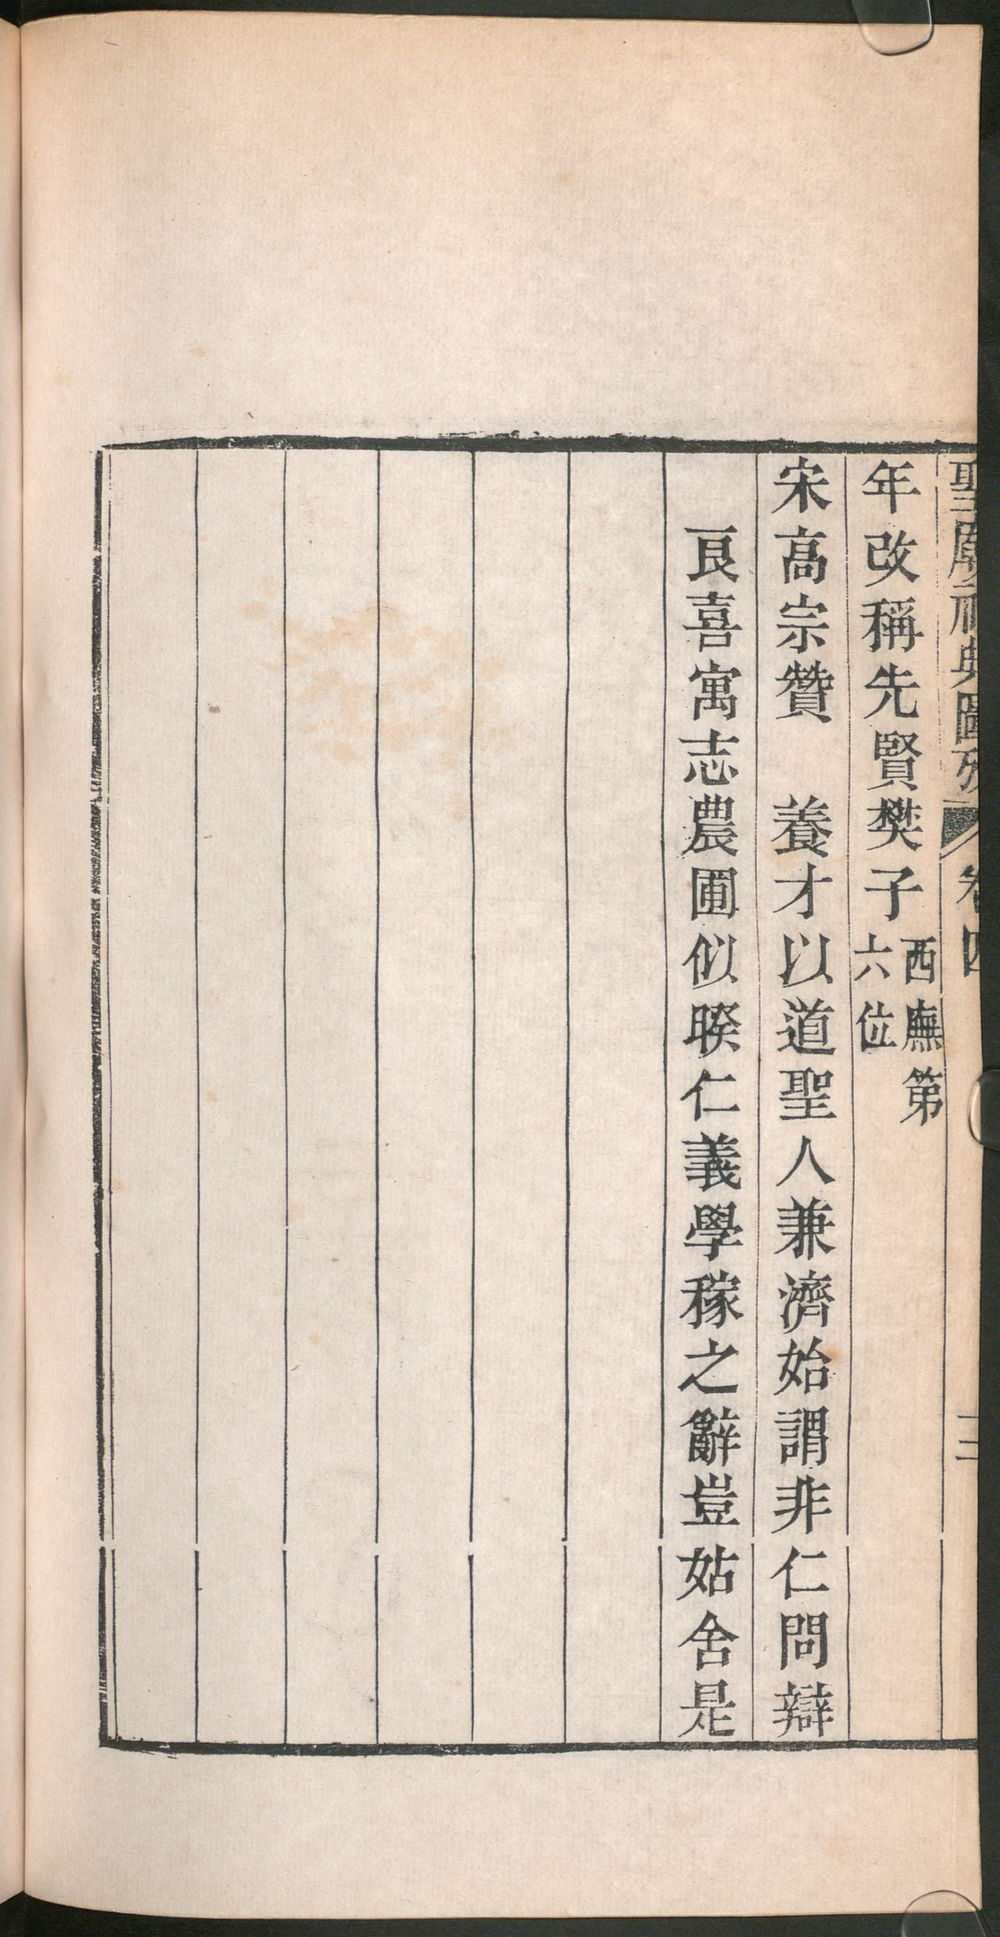 聖廟祀典圖攷 卷四
年改稱先賢樊子西廡第
六位
宋高宗贊　養才以道聖人兼濟始謂非仁問辯
良喜寓志農圃似睽仁義學稼之辭豈姑舍是